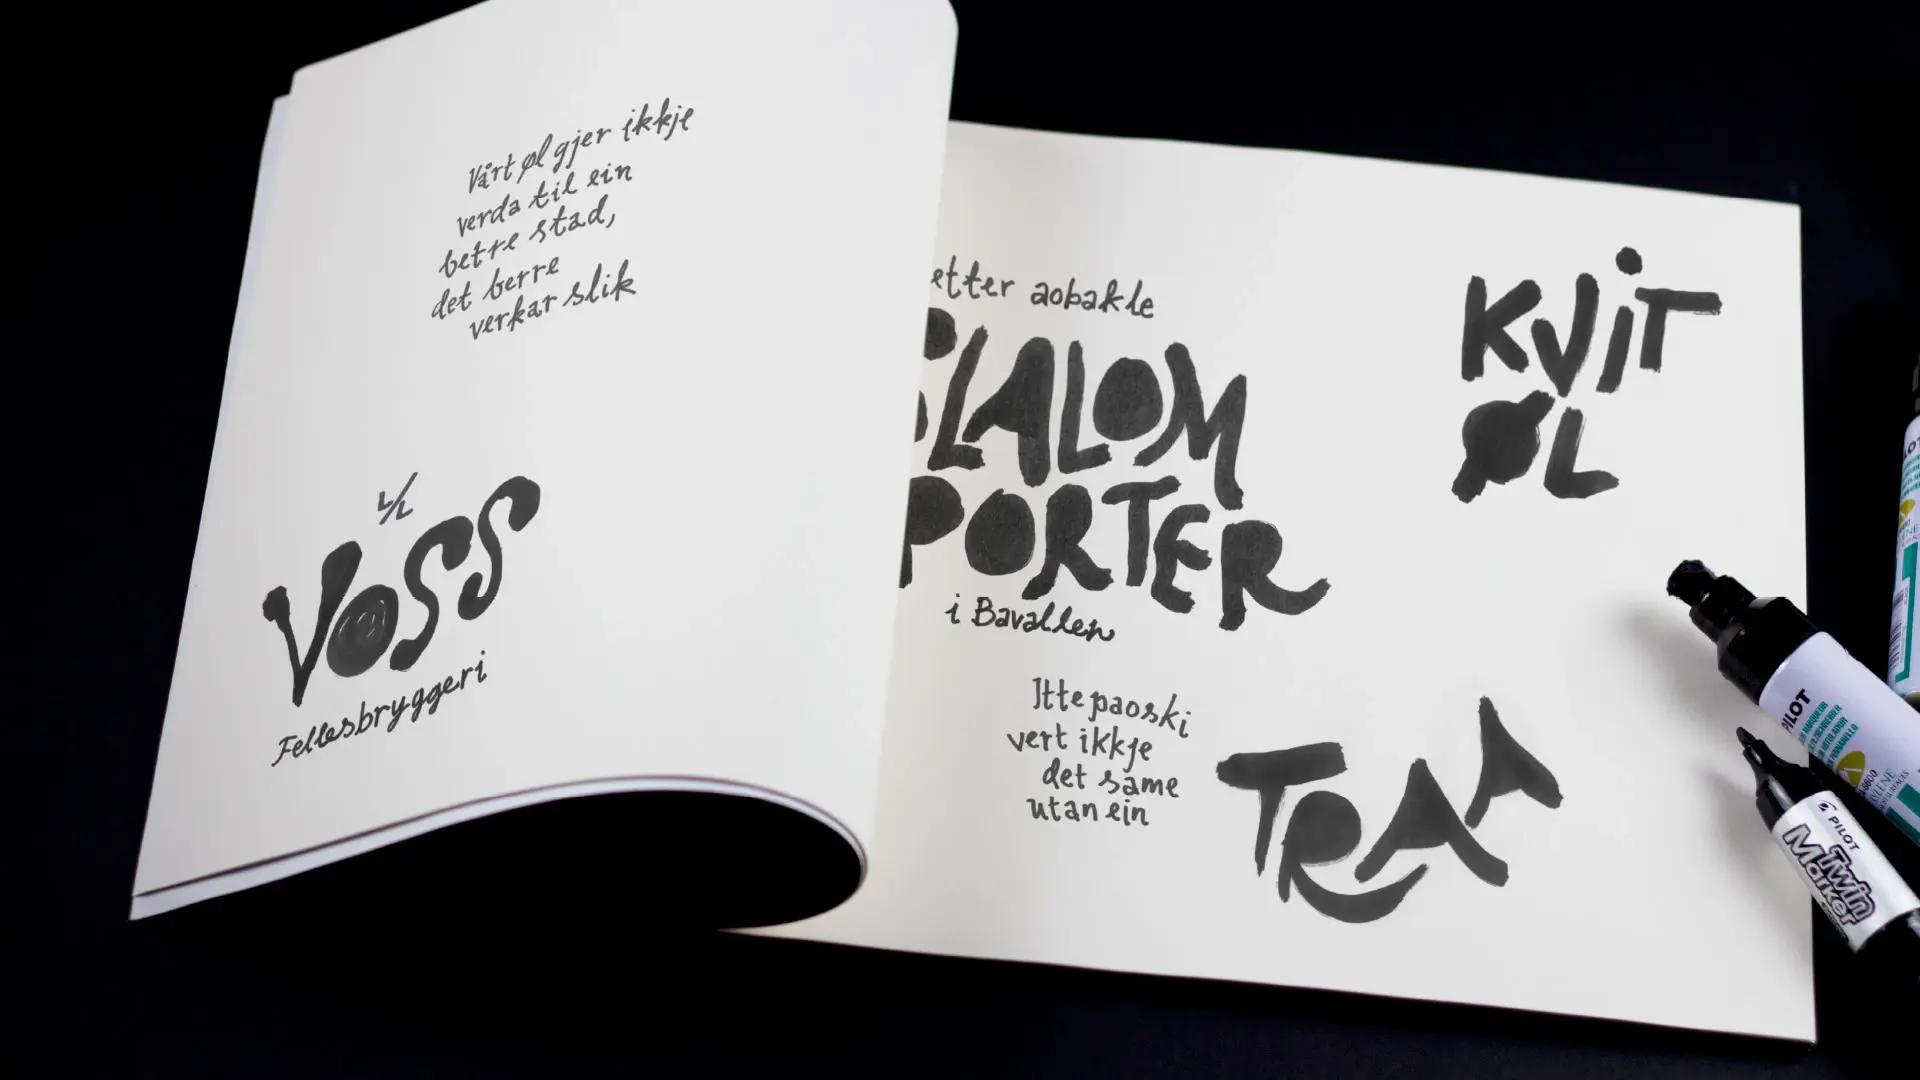 Vårt øl gjer ikkje
verda til ein
betre stad,
det berre
verkar slik
L/L
Voss
Fellesbryggeri
etter aobakle
SLALOM
PORTER
i Bavallen
Itte paoski
vert ikkje
det same
utan ein
KViT
ØL
TRAA
PILOT
PILOT
Twin
Marker